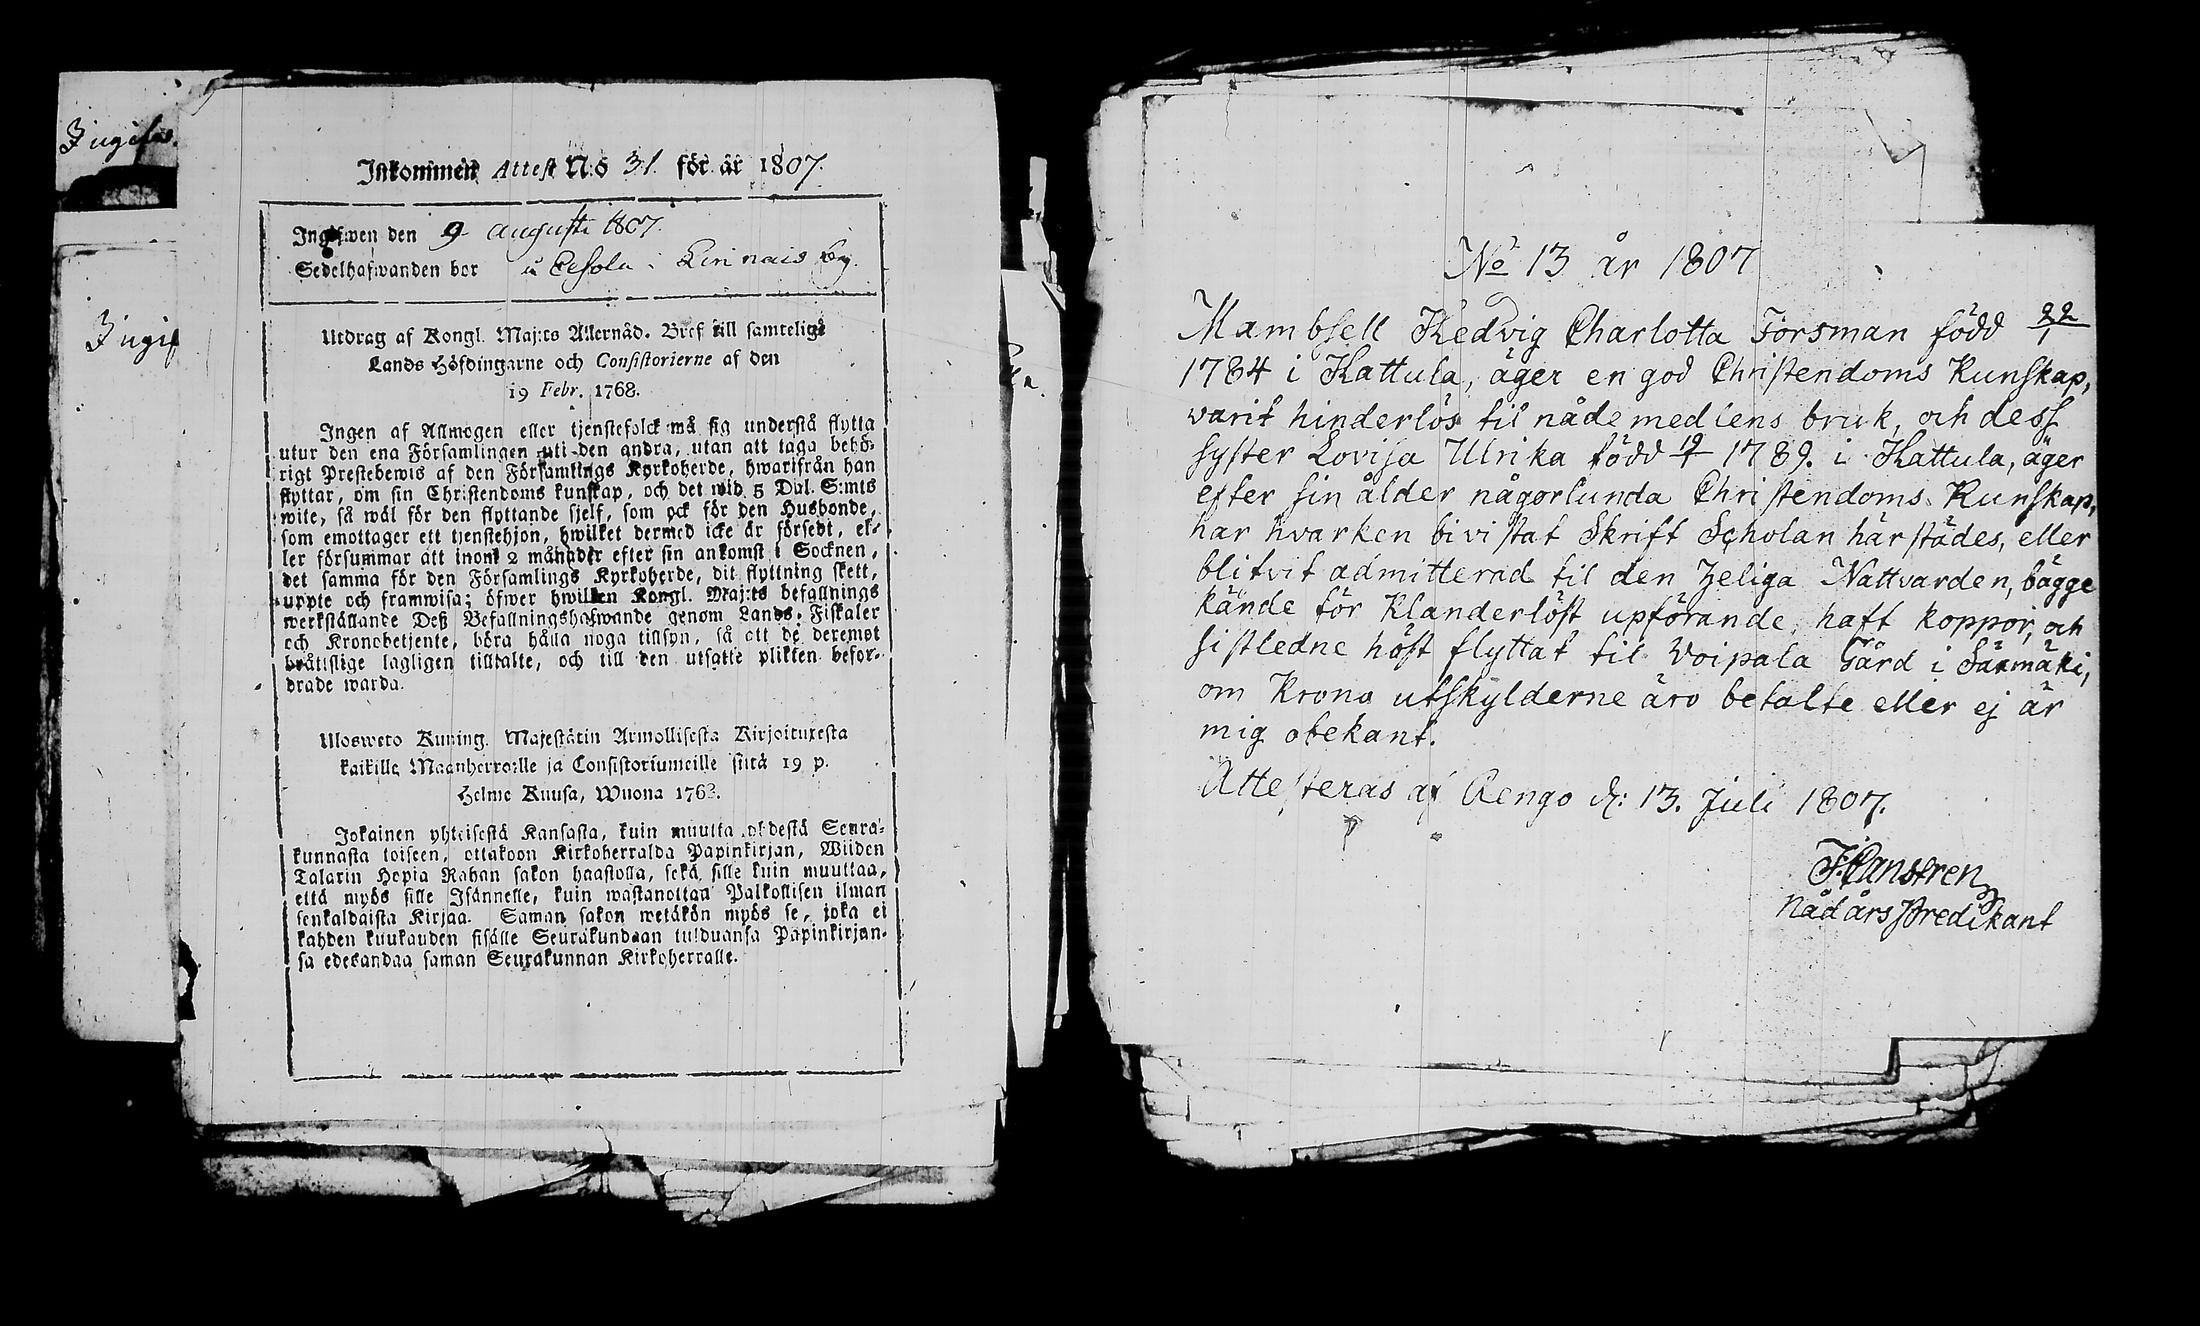 Inkommen Attest N:o 31. för år 1807.
Ingifwen den 9 augusti 1807.
Sedelhafwanden bor i Kirinais by.
Utdrag af Kongl. Maj:ts Allernåd. Bref till samtelige
Lands Höfdingarne och Consistorierne af den
19 Febr. 1768.
Ingen af Allmogen eller tjenstefolck må sig understå flytta
utur den ena Församlingen uti den andra, utan att taga behö-
rigt Prestebewis af den Församlings Kyrkoherde, hwarifrån han
flyttar, om sin Christendoms kunskap, och det wid 5 Dal. S:mts
wite, så wäl för den flyttande sjelf, som ock för den Husbonde,
som emottager ett tjenstehjon, hwilket dermed icke är försedt, el-
ler försummar att inom 2 månader efter sin ankomst i Socknen,
det samma för den Församlings Kyrkoherde, dit flyttning skett,
uppte och framwisa; öfwer hwilken Kongl. Maj:ts befallnings
werkställande Deß Befallningshafwande genom Lands-Fiskaler
och Kronobetjente, böra hålla noga tillsyn, så att de deremot
bråttslige lagligen tilltalte, och till den utsatte plikten befor-
drade warda.
Ulosweto Kuning. Majestätin Armollisesta Kirjoituxesta
kaikille Maanherroille ja Consistoriumeille siitä 19 p.
Helme Kuusa, Wuona 1768.
Jokainen yhteisestä Kansasta, kuin muutta yhdestä Seura-
kunnasta toiseen, ottakoon Kirkoherralda Papinkirjan, Wiiden
Talarin Hopia Rahan sakon haastolla, sekä sille kuin muuttaa,
että myös sille Isännelle, kuin wastanottaa Palkollisen ilman
senkaldaista Kirjaa. Saman sakon wetäkön myös se, joka ei
kahden kuukauden sisälle Seurakundaan tulduansa Papinkirjan-
sa edesandaa saman Seurakunnan Kirkoherralle.
No 13 år 1807
Mambsell Hedvig Charlotta Forsman född 22/1
1784 i Hattula, äger en god Christendoms Kunskap,
varit hinderlös til nådemedlens bruk, och dess
syster Lovisa Ulrika född 19/4 1789. i Hattula, äger
efter sin ålder någorlunda Christendoms Kunskap,
har hvarken bivistat Skrift Scholan härstädes, eller
blifvit admitterad til den heliga Nattvarden, bägge
kände för Klanderlöst upförande, haft koppor, och
sistledne höst flyttat til Voipala Gård i Säxmäki,
om Krono utskylderne äro betalte eller ej är
mig obekant.
Attesteras af Rengo d: 13. Juli 1807.
Nådårs Predikant